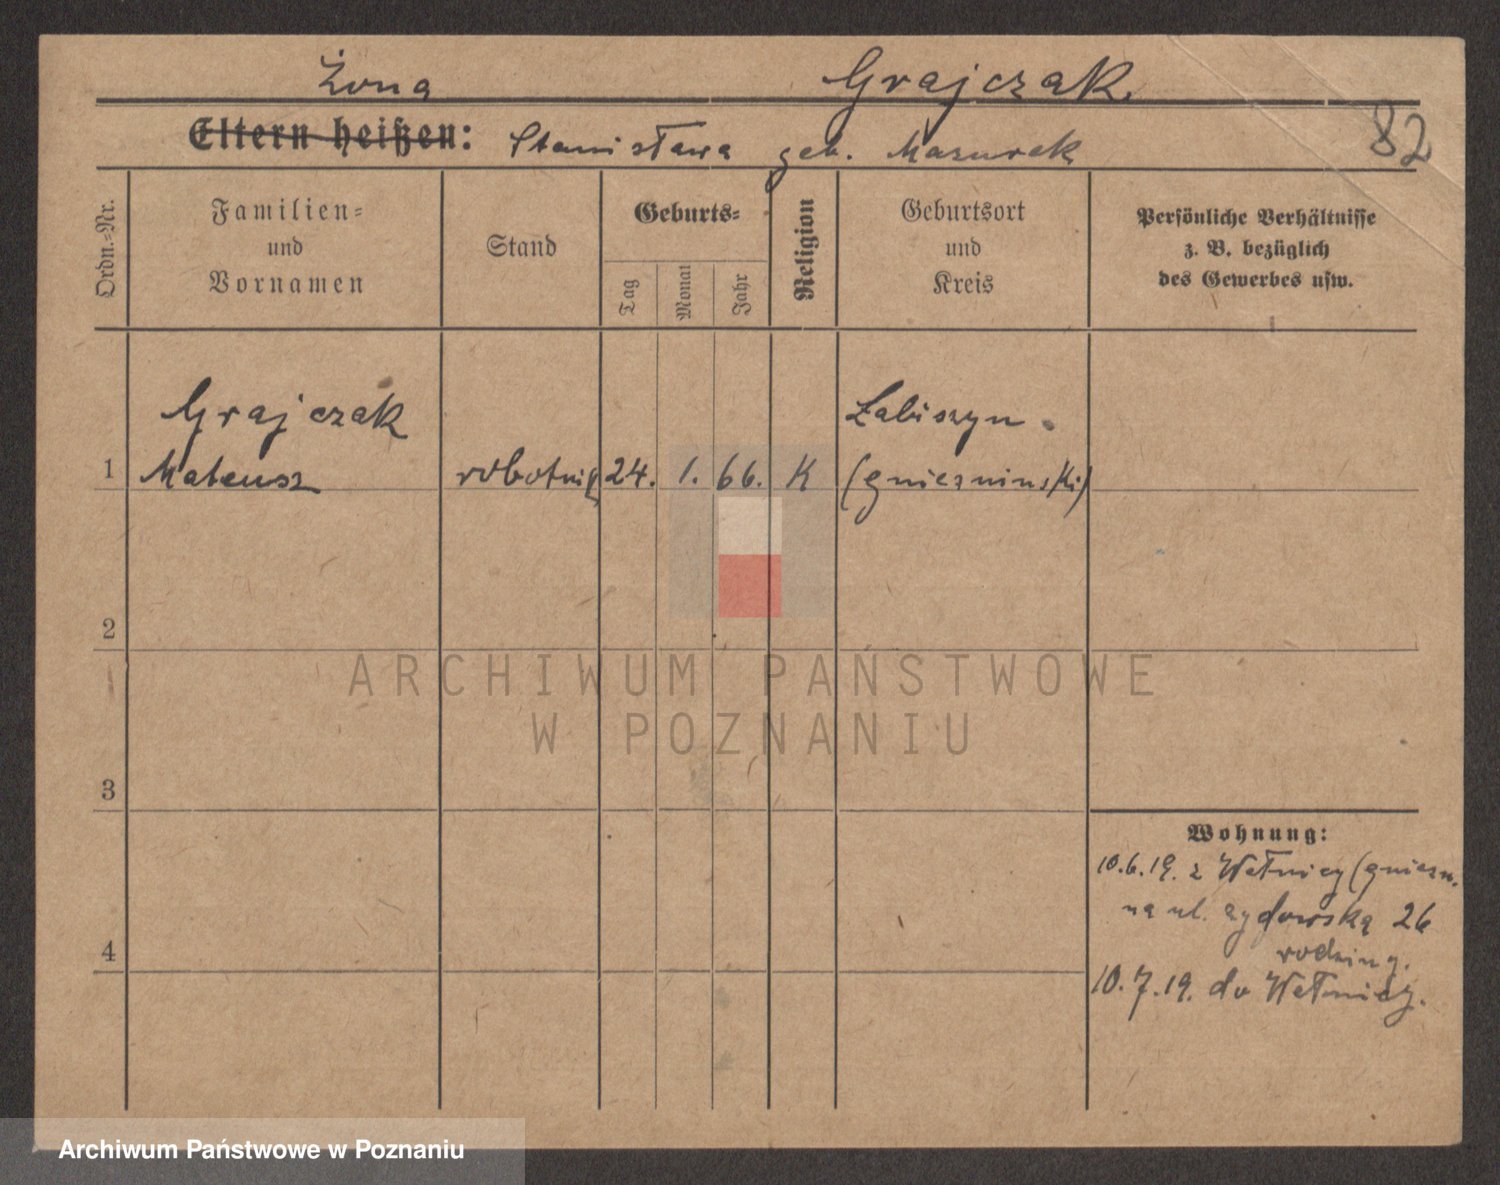 Żona Grajczak.
Eltern heißen: Stanisława geb. Mazurek
82
Ordn.-Nr.
Familien-
und
Vornamen
Stand
Geburts-
Tag
Monat
Jahr
Religion
Geburtsort
und
Kreis
Persönliche Verhältnisse
z. B. bezüglich
des Gewerbes usw.
Grajczak Łabiszyn.
1 Mateusz robotnik 24. 1. 66. K (gniezninski)
2
ARCHIWUM PAŃSTWOWE
W POZNANIU
3
Wohnung:
10.6.19. z Wełnicy (gniezn.
na ul. żydowską 26
rodziny.
4
10.7.19. do Wełnicy.
Archiwum Państwowe w Poznaniu